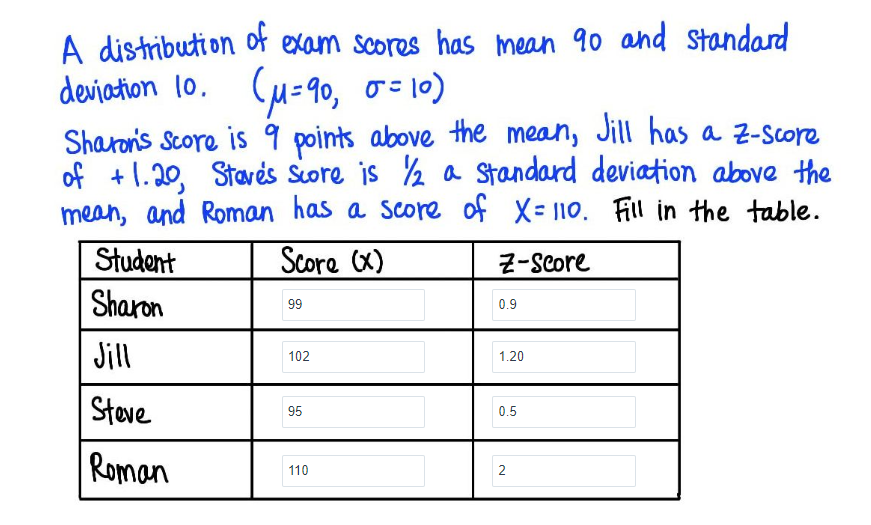 A distribution of exam scores has mean 90 and standard
deviation 10. (μ=90, σ=10)
Sharon's score is 9 points above the mean, Jill has a z-score
of +1.20, Steve's score is 1/2 a standard deviation above the
mean, and Roman has a score of X=110. Fill in the table.
Student Score (X) z-score
Sharon 99 0.9
Jill 102 1.20
Steve 95 0.5
Roman 110 2